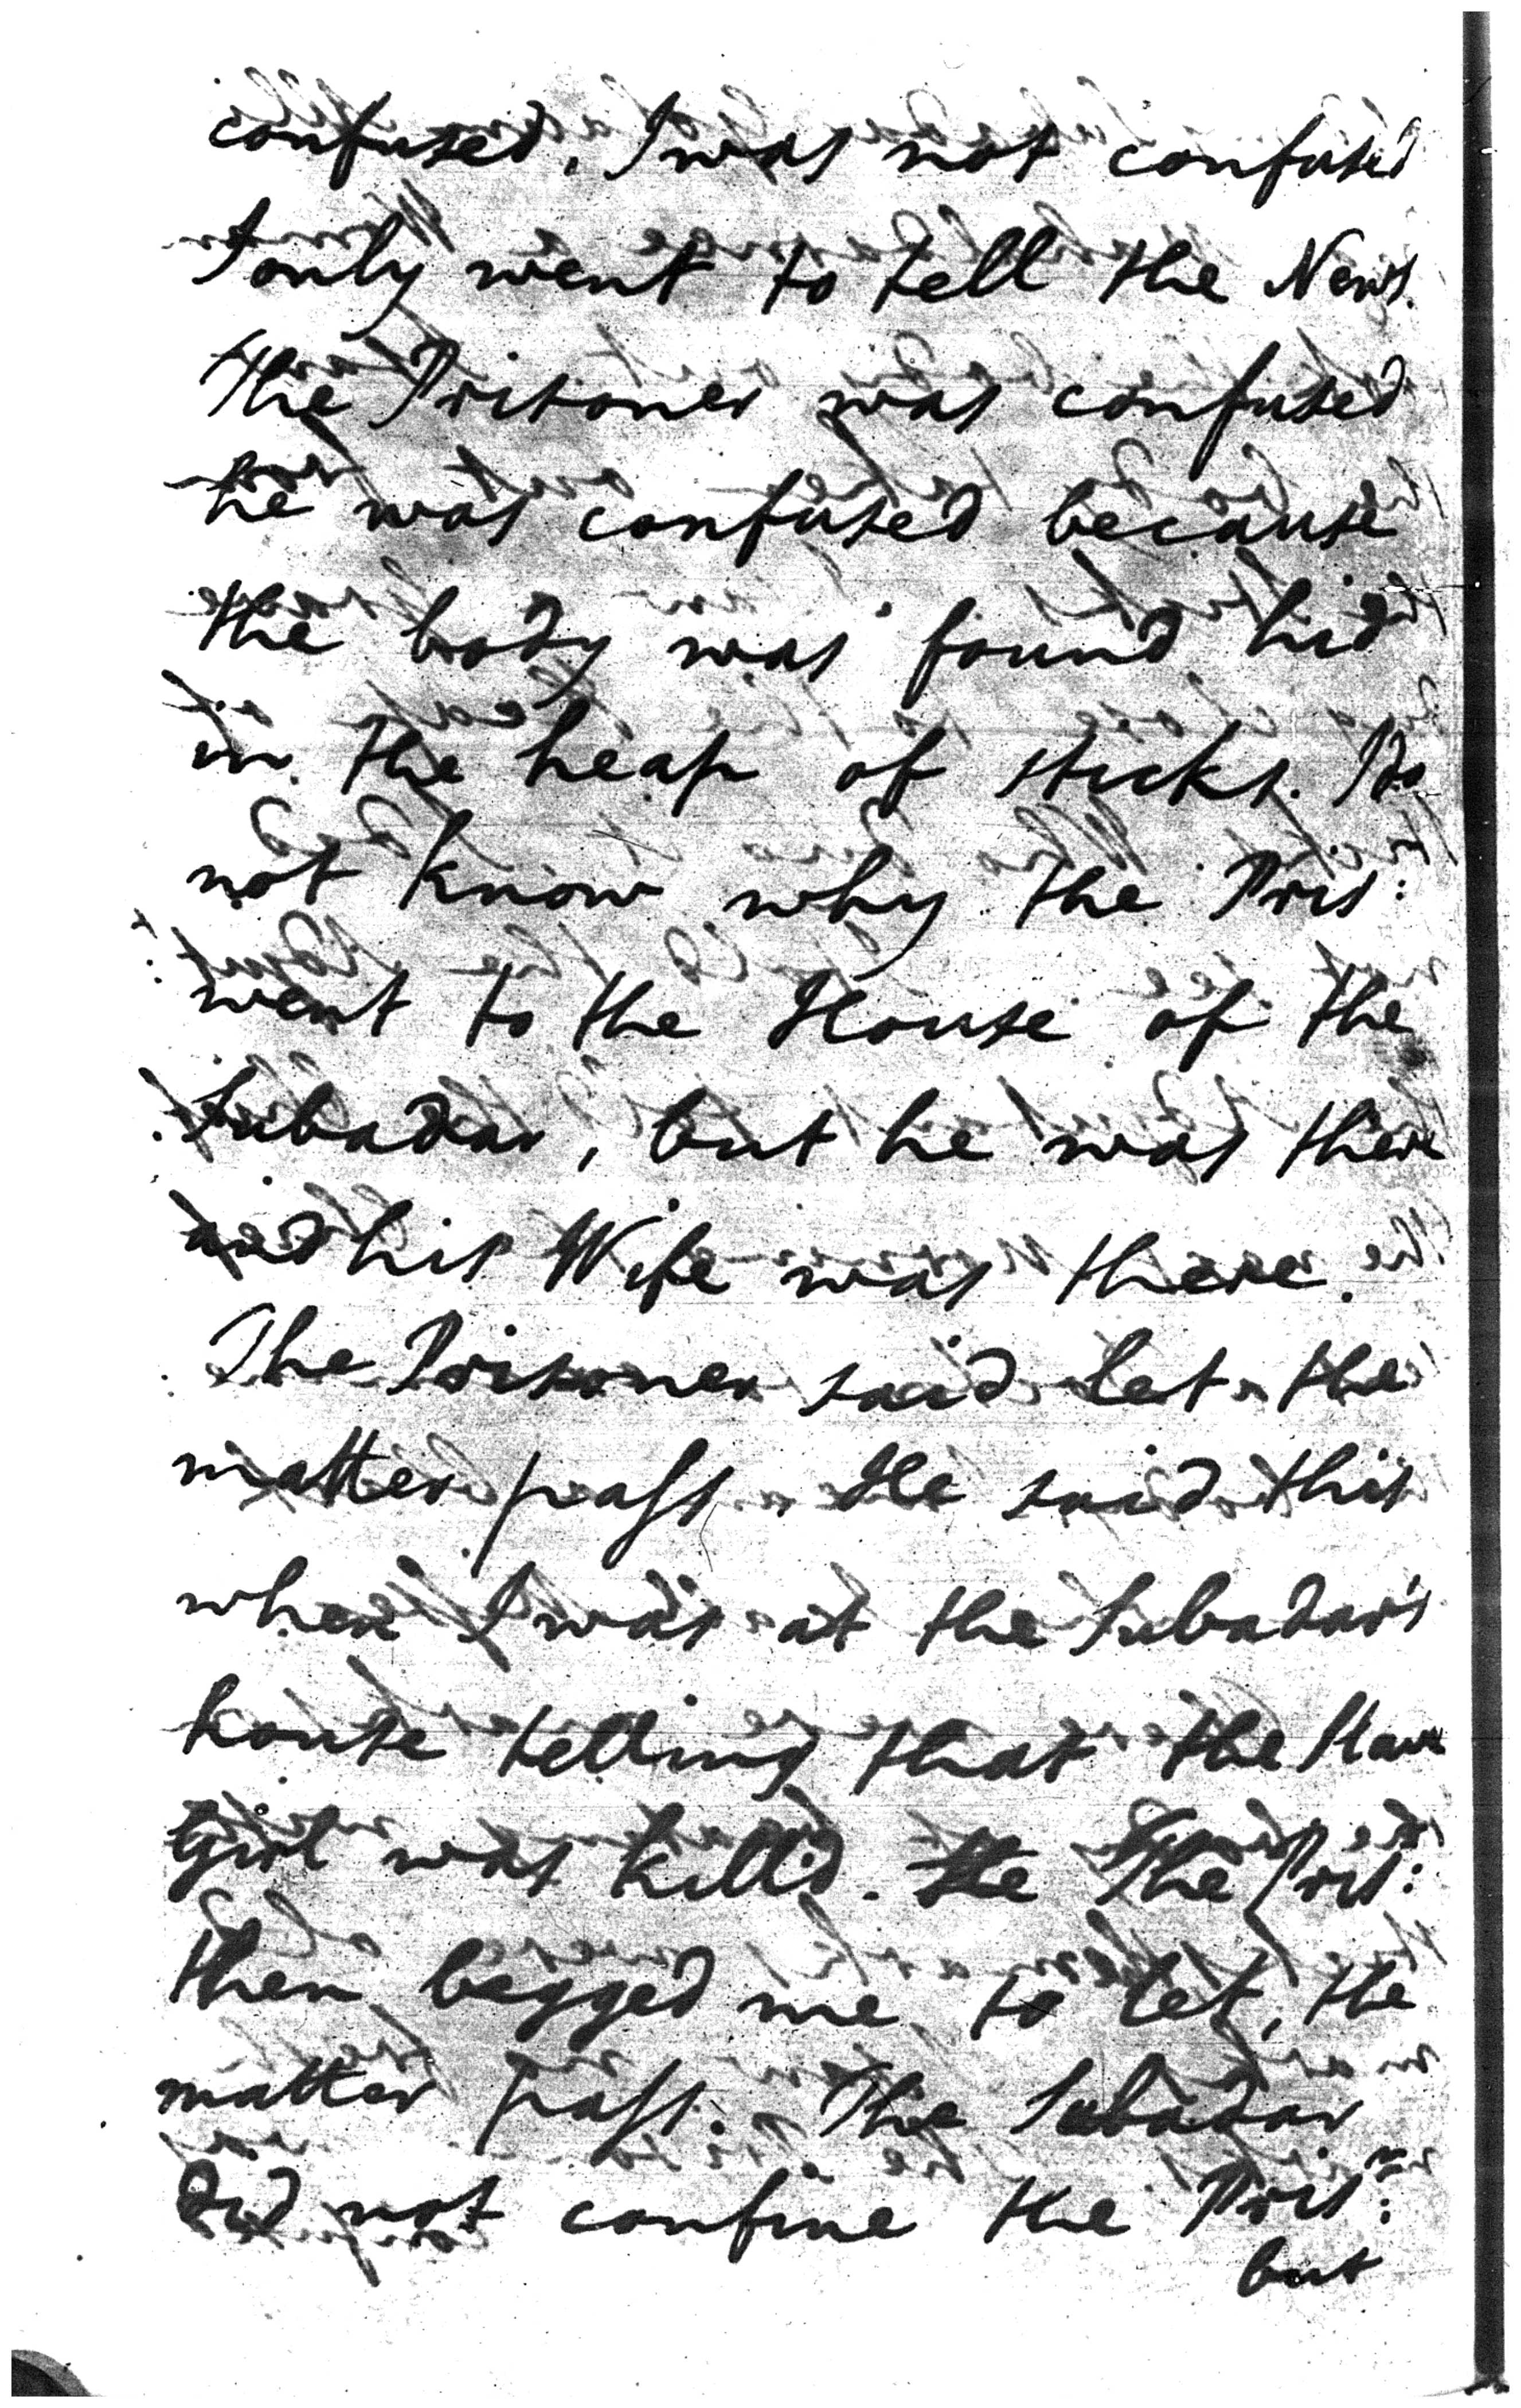 confused, I was not confused
I only went to tell the News.
The Prisoner was confused
he was confused because
the body was found hid
in the heap of sticks. Do
not know why the Pris:
went to the House of the
Subadar, but he was there
and his Wife was there.
The Prisoner said let the
matter pass. He said this
when I was at the Subadar's
house telling that the Slave
Girl was killd. He The Pris:
then begged me to let, the
matter pass. The Subadar
did not confine the Pris:r
but